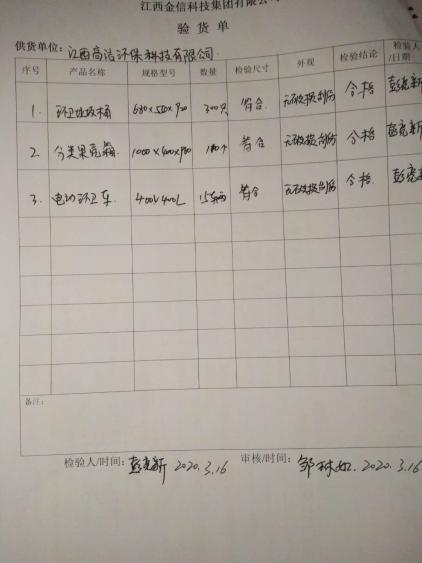 江西金信科技集团有限公
验货单
供货单位：江西高洁环保科技有限公司
序号 产品名称 规格型号 数量 检验尺寸 外观 检验结论 检验人/日期
1. 环卫垃圾桶 300只 符合 无破损刮伤 合格 彭亮新
2. 分类果壳箱 符合 无破损刮伤 合格 彭亮新
3. 电动环卫车 400V400L 15辆 符合 无破损刮伤 合格 彭亮
备注：
检验人/时间：彭亮新 2020.3.16 审核/时间：邹林如 2020.3.16